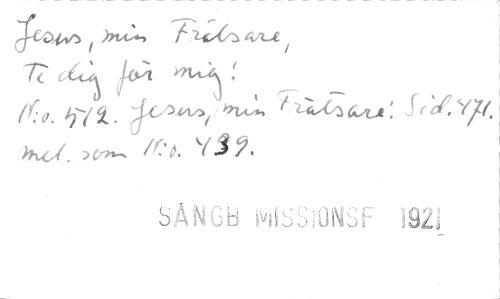 Jesus, min Frälsare,
Te dig för mig!
N:o. 512. Jesus, min Frälsare! Sid. 471.
mel. som N:o. 439.
SÅNGB MISSIONSF 1921